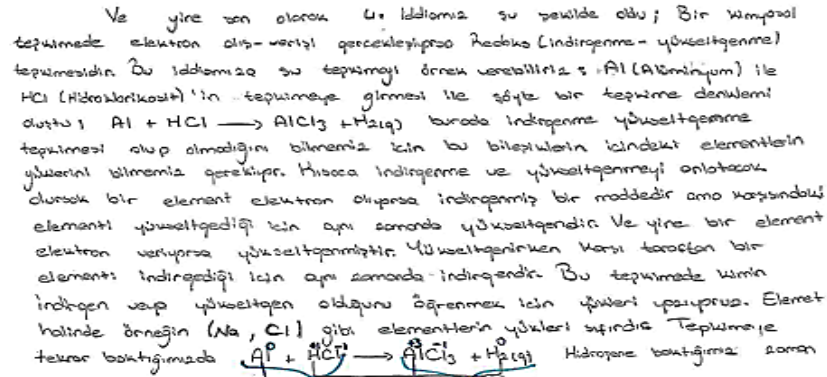 Ve yine son olarak 4. iddiamız şu şekilde oldu ; Bir kimyasal
tepkimede elektron alış-verişi gerçekleşiyorsa Redoks (indirgenme - yükseltgenme)
tepkimesidir. Bu iddiamıza şu tepkimeyi örnek verebiliriz ; Al (Alüminyum) ile
HCl (Hidroklorikasit)'in tepkimeye girmesi ile şöyle bir tepkime denklemi
oluştu ; Al + HCl → AlCl3 + H2(g) burada indirgenme yükseltgenme
tepkimesi olup olmadığını bilmemiz için bu bileşiklerin içindeki elementlerin
yüklerini bilmemiz gerekiyor. Kısaca indirgenme ve yükseltgenmeyi anlatacak
olursak bir element elektron alıyorsa indirgenmiş bir maddedir ama karşısındaki
elementi yükseltgediği için aynı zamanda yükseltgendir. Ve yine bir element
elektron veriyorsa yükseltgenmiştir. Yükseltgenirken karşı taraftan bir
elementi indirgediği için aynı zamanda indirgendir. Bu tepkimede kimin
indirgen veya yükseltgen olduğunu öğrenmek için yükleri yazıyoruz. Elemet
halinde örneğin (Na, Cl) gibi elementlerin yükleri sıfırdır. Tepkimeye
tekrar baktığımızda Al⁰ + H⁺¹Cl⁻¹ → Al⁺³Cl⁻¹3 + H⁰2(g) Hidrojene baktığımız zaman